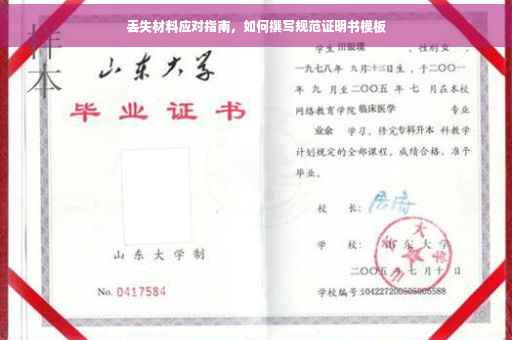 丢失材料应对指南，如何撰写规范证明书模板
样本
山东大学
毕业证书
山东大学制
No. 0417584
学生 性别女，
一九七八年 九月十三日生，于二〇〇一
年 九 月至二〇〇五 年 七 月在本校
网络教育学院临床医学 专业
业余 学习，修完专科升本 科教学
计划规定的全部课程，成绩合格，准予
毕业。
校 长：
学 校：山东大学
二〇〇五年七月十日
学校编号:104227200505005588